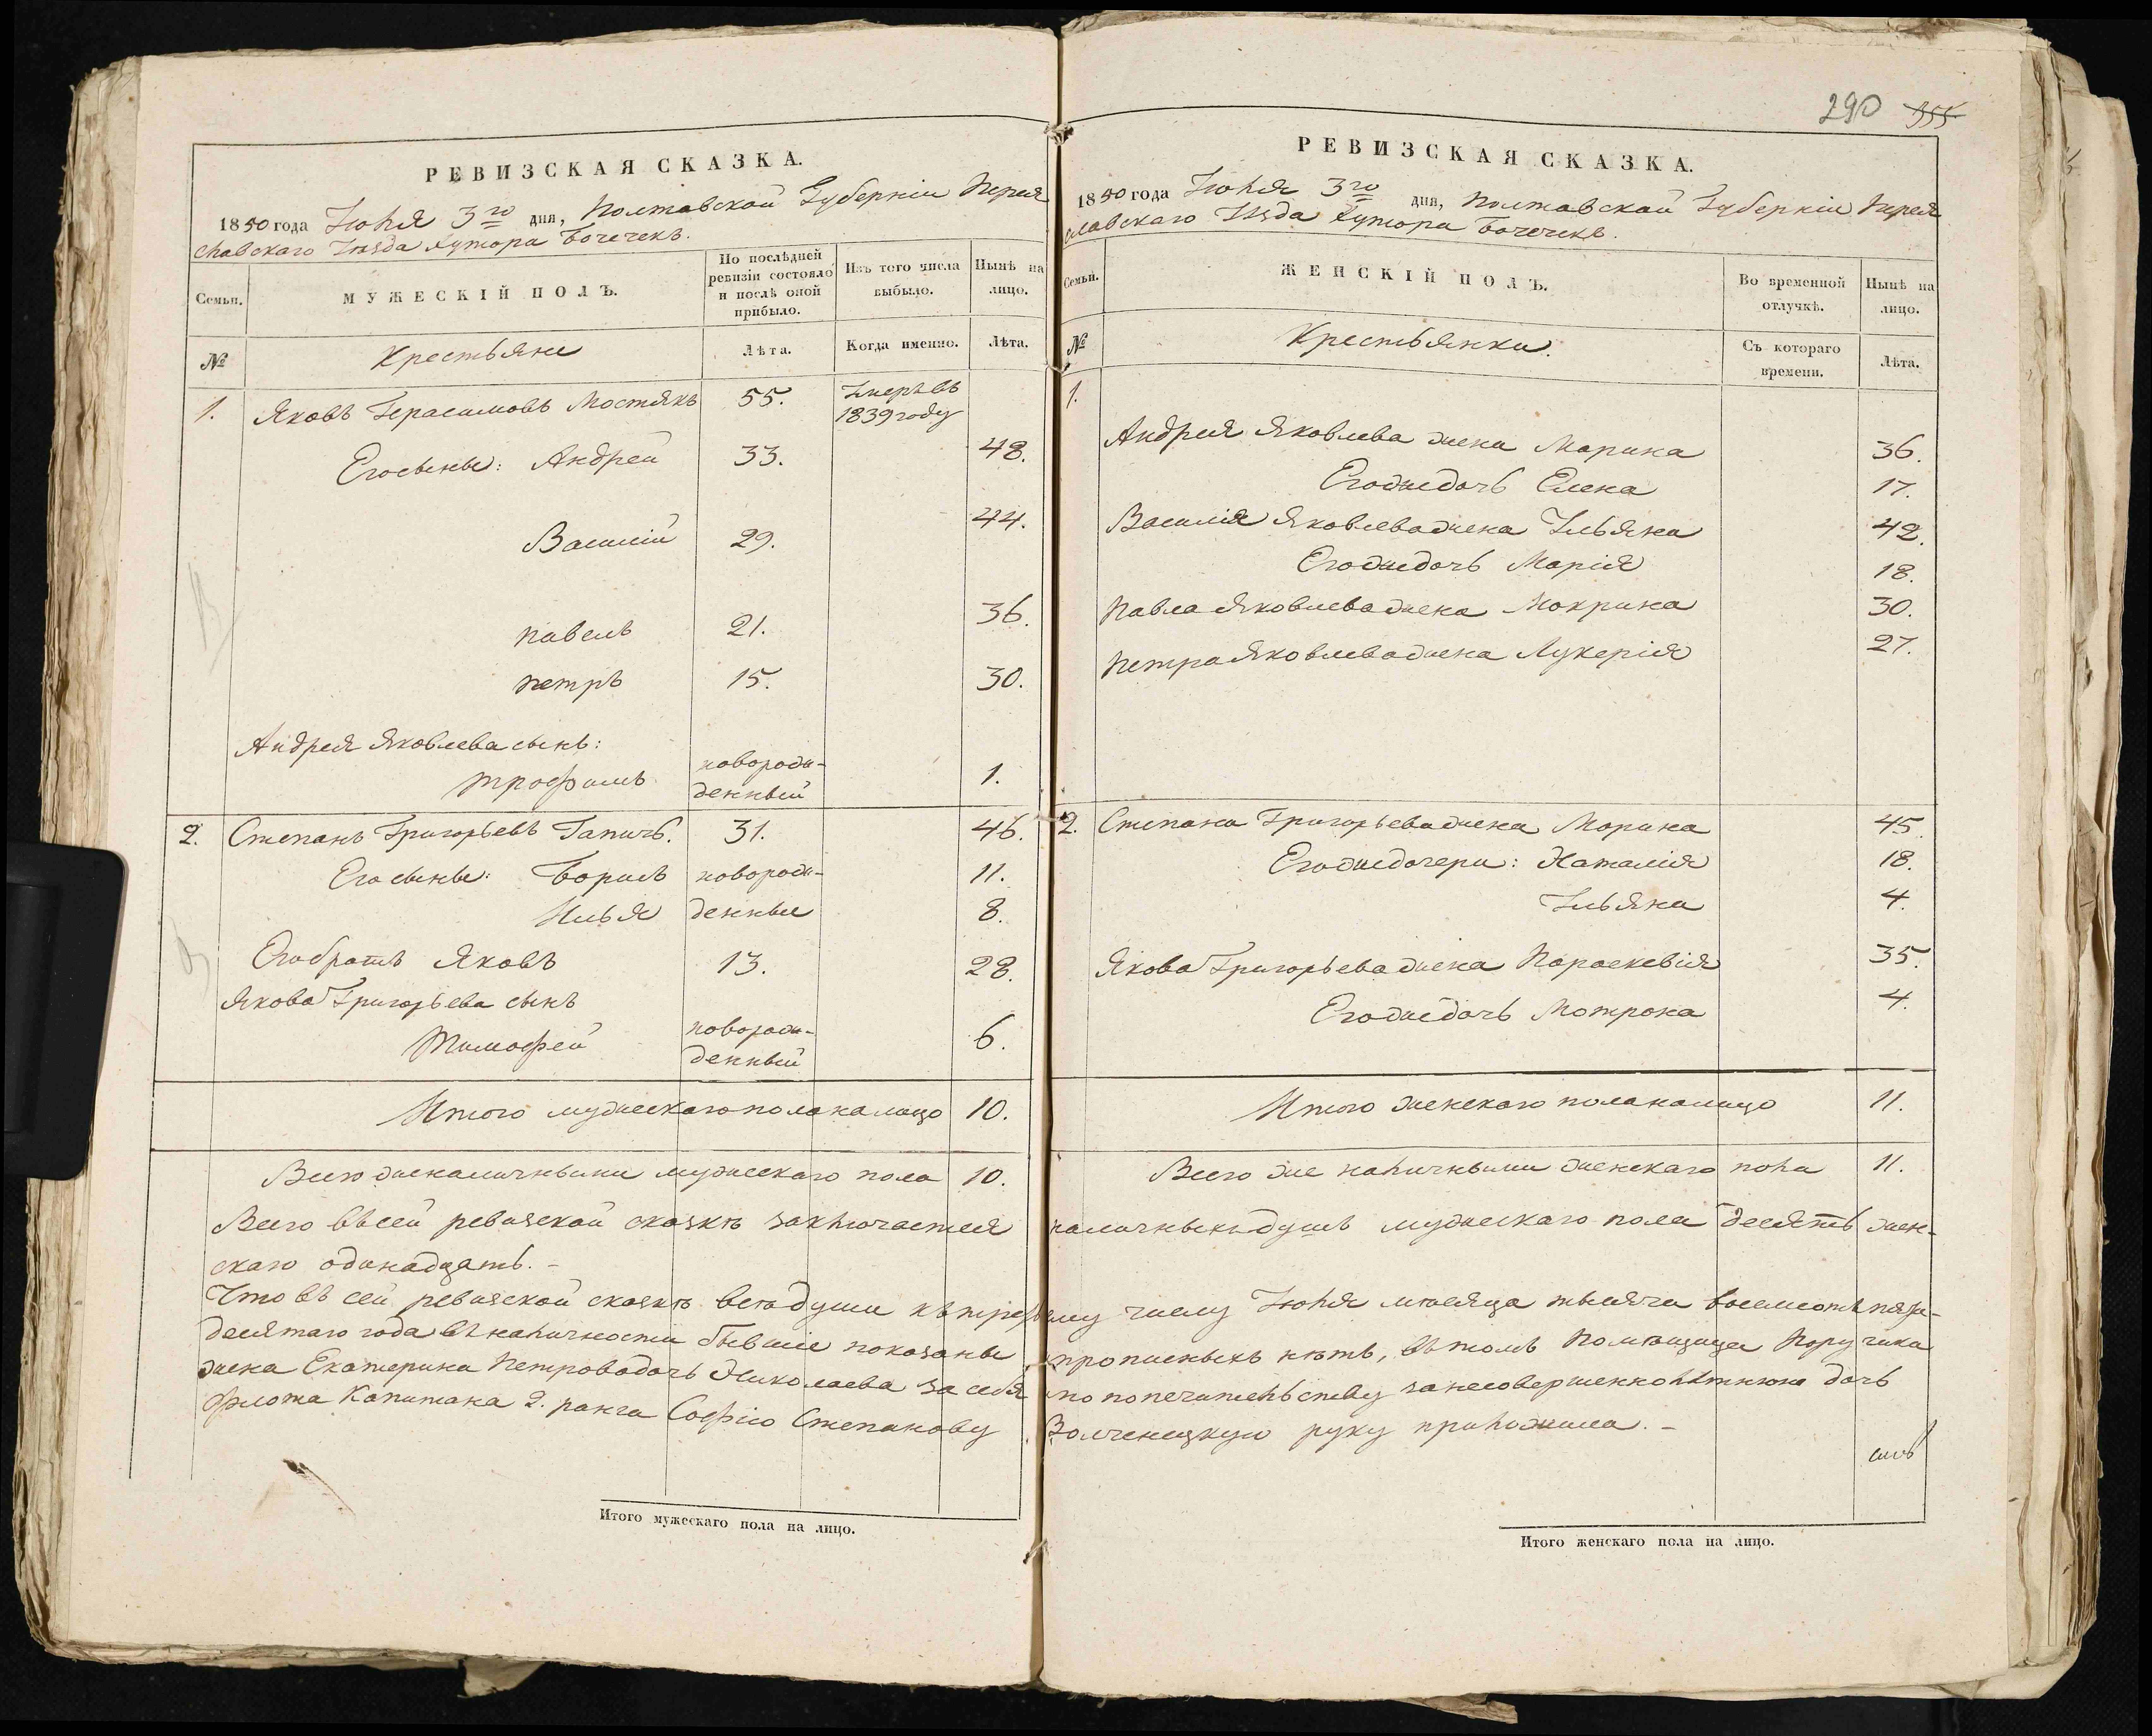 290 355
РЕВИЗСКАЯ СКАЗКА.
1850 года Іюня 3го дня, Полтавской Губерніи Перея
славскаго Уѣзда Хутора Бочечекъ.
Семьи.
МУЖЕСКІЙ ПОЛЪ.
По послѣдней ревизіи состояло и послѣ оной прибыло.
Изъ того числа выбыло.
Нынѣ на лицо.
№ Крестьяне Лѣта. Когда именно. Лѣта.
1. Яковъ Герасимовъ Мостякъ 55. Умеръ въ 1839 году
Его сыны: Андрей 33. 48.
Василій 29. 44.
Павелъ 21. 36.
Петръ 15. 30.
Андрея Яковлева сынъ:
Трофимъ новорож-
денный 1.
2. Степанъ Григорьевъ Гапичъ. 31. 46.
Его сыны: Борисъ новорож- 11.
Илья денные 8.
Его братъ Яковъ 13. 28.
Якова Григорьева сынъ
Тимофей новорож-
денный 6.
Итого мужескаго пола на лицо 10.
Всего же наличными мужескаго пола 10.
РЕВИЗСКАЯ СКАЗКА.
1850 года Іюня 3го дня, Полтавской Губерніи Перея
славскаго Уѣзда Хутора Бочечекъ.
Семьи.
ЖЕНСКІЙ ПОЛЪ.
Во временной отлучкѣ.
Нынѣ на лицо.
№ Крестьянки. Съ котораго времени. Лѣта.
1.
Андрея Яковлева жена Марина 36.
Его же дочь Елена 17.
Василія Яковлева жена Ульяна 42.
Его же дочь Марія 18.
Павла Яковлева жена Мокрина 30.
Петра Яковлева жена Лукерія 27.
2. Степана Григорьева жена Марина 45.
Его же дочери: Наталія 18.
Ульяна 4.
Якова Григорьева жена Параскевія 35.
Его же дочь Мотрона 4.
Итого женскаго пола налицо 11.
Всего же наличными женскаго пола 11.
Всего въ сей ревизской сказкѣ заключается наличныхъ душъ мужескаго пола десять жен-
скаго одинадцать. -
Что въ сей ревизской сказкѣ всѣ души къ третьему числу Іюня мѣсяца тысяча восемсотъ пять-
десятаго года въ наличности бывшіе показаны и прописныхъ нѣтъ, въ томъ Помѣщица Поручика
жена Екатерина Петрова дочь Николаева за себя и по попечительству за несовершеннолѣтнюю дочь
Флота Капитана 2. ранга Софію Степанову Волченецкую руку приложила. -
Итого мужескаго пола на лицо.
Итого женскаго пола на лицо.